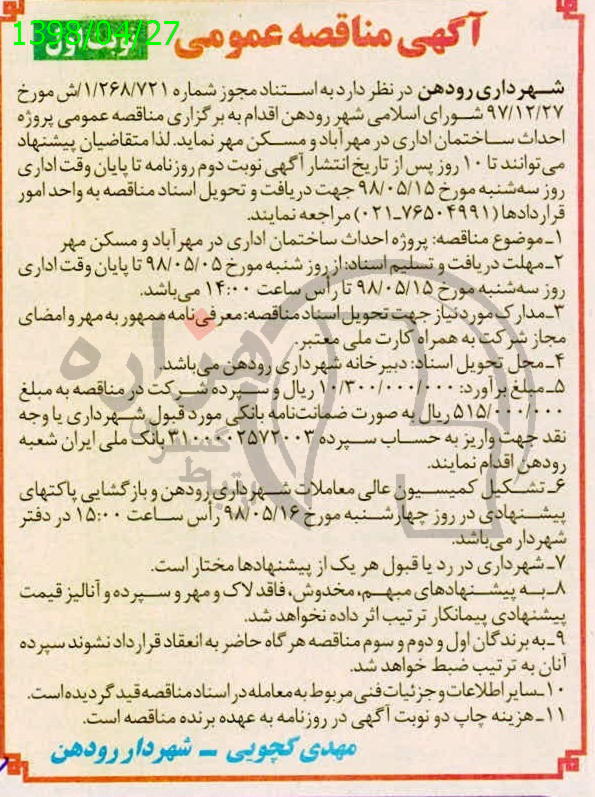 1398/04/27
آگهی مناقصه عمومی
نوبت اول
شهرداری رودهن در نظر دارد به استناد مجوز شماره ۱/۲۶۸/۷۲۱/ش مورخ
۹۷/۱۲/۲۷ شورای اسلامی شهر رودهن اقدام به برگزاری مناقصه عمومی پروژه
احداث ساختمان اداری در مهرآباد و مسکن مهر نماید. لذا متقاضیان پیشنهاد
می‌توانند تا ۱۰ روز پس از تاریخ انتشار آگهی نوبت دوم روزنامه تا پایان وقت اداری
روز سه‌شنبه مورخ ۹۸/۰۵/۱۵ جهت دریافت و تحویل اسناد مناقصه به واحد امور
قراردادها (۷۶۵۰۴۹۹۱-۰۲۱) مراجعه نمایند.
۱ـ موضوع مناقصه: پروژه احداث ساختمان اداری در مهرآباد و مسکن مهر
۲ـ مهلت دریافت و تسلیم اسناد: از روز شنبه مورخ ۹۸/۰۵/۰۵ تا پایان وقت اداری
روز سه‌شنبه مورخ ۹۸/۰۵/۱۵ تا رأس ساعت ۱۴:۰۰ می‌باشد.
۳ـ مدارک مورد نیاز جهت تحویل اسناد مناقصه: معرفی‌نامه ممهور به مهر و امضای
مجاز شرکت به همراه کارت ملی معتبر.
۴ـ محل تحویل اسناد: دبیرخانه شهرداری رودهن می‌باشد.
۵ـ مبلغ برآورد: ۱۰/۳۰۰/۰۰۰/۰۰۰ ریال و سپرده شرکت در مناقصه به مبلغ
۵۱۵/۰۰۰/۰۰۰ ریال به صورت ضمانت‌نامه بانکی مورد قبول شهرداری یا وجه
نقد جهت واریز به حساب سپرده ۳۱۰۰۰۰۲۵۷۲۰۰۳ بانک ملی ایران شعبه
رودهن اقدام نمایند.
۶ـ تشکیل کمیسیون عالی معاملات شهرداری رودهن و بازگشایی پاکتهای
پیشنهادی در روز چهارشنبه مورخ ۹۸/۰۵/۱۶ رأس ساعت ۱۵:۰۰ در دفتر
شهردار می‌باشد.
۷ـ شهرداری در رد یا قبول هر یک از پیشنهادها مختار است.
۸ـ به پیشنهادهای مبهم، مخدوش، فاقد لاک و مهر و سپرده و آنالیز قیمت
پیشنهادی پیمانکار ترتیب اثر داده نخواهد شد.
۹ـ به برندگان اول و دوم و سوم مناقصه هرگاه حاضر به انعقاد قرارداد نشوند سپرده
آنان به ترتیب ضبط خواهد شد.
۱۰ـ سایر اطلاعات و جزئیات فنی مربوط به معامله در اسناد مناقصه قید گردیده است.
۱۱ـ هزینه چاپ دو نوبت آگهی در روزنامه به عهده برنده مناقصه است.
مهدی کچویی - شهردار رودهن
هزاره